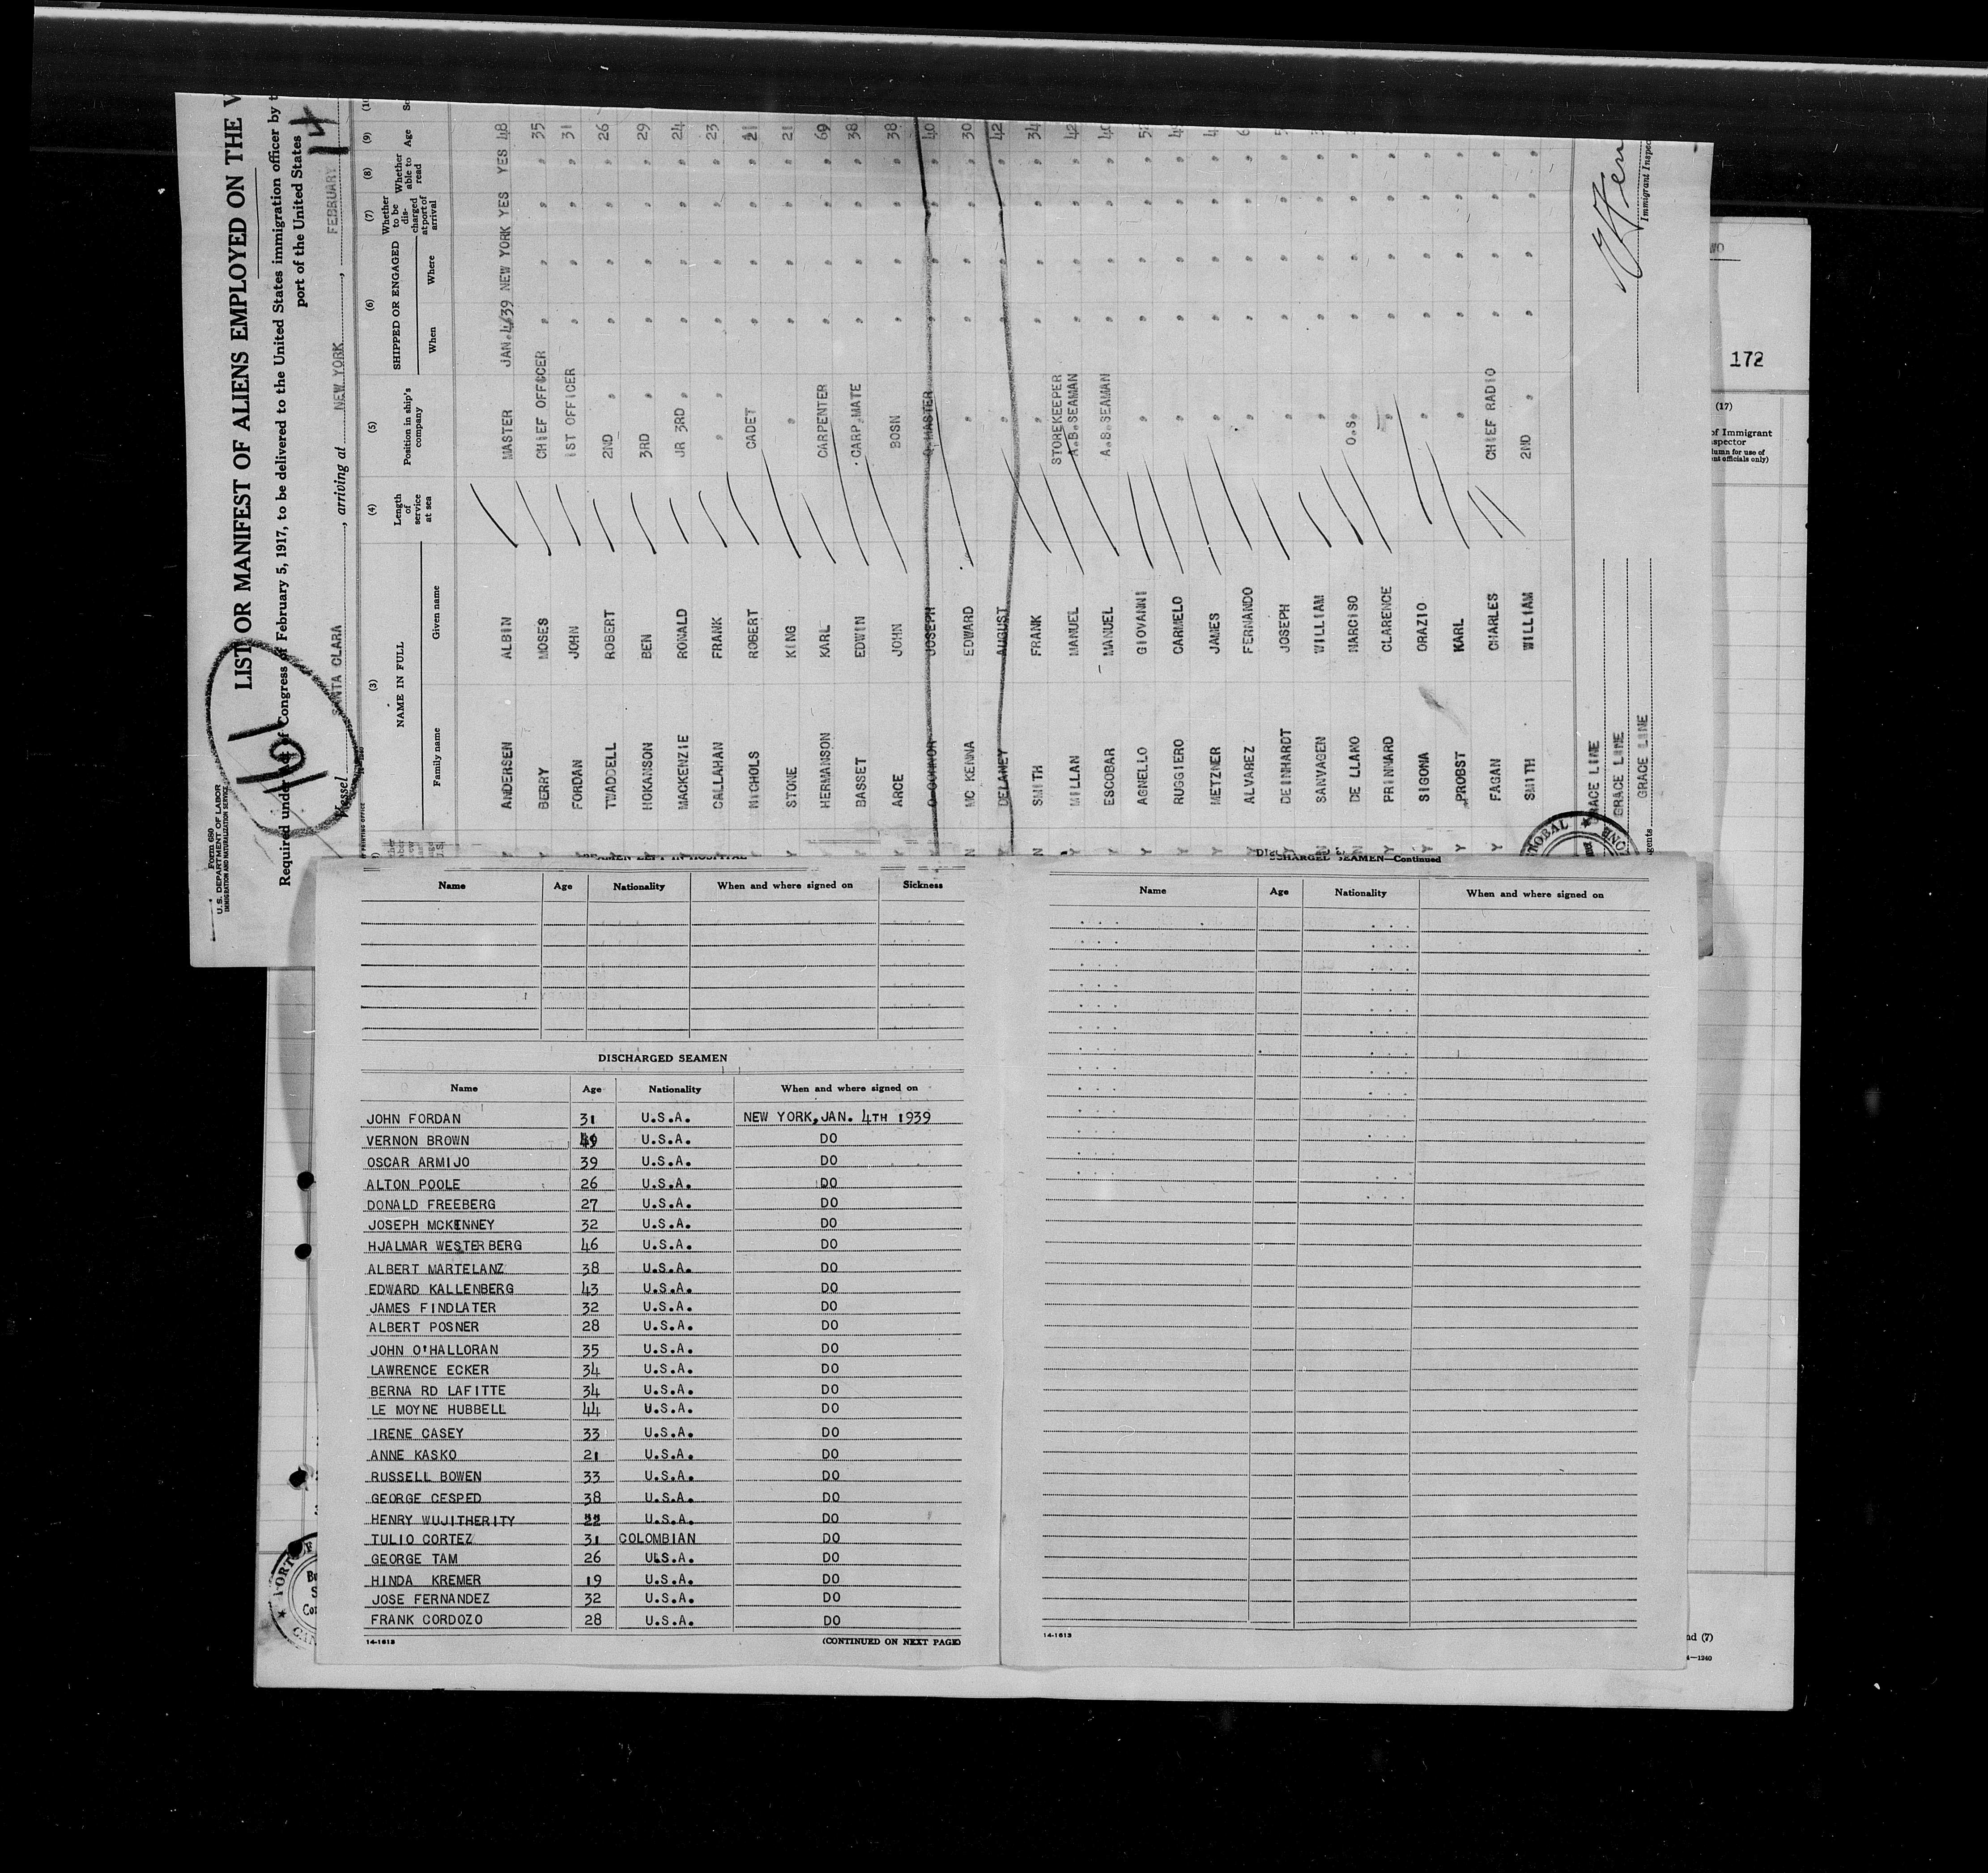 Form 680
U.S. DEPARTMENT OF LABOR
IMMIGRATION AND NATURALIZATION SERVICE
161
LIST OR MANIFEST OF ALIENS EMPLOYED ON THE
Required under of Congress of February 5, 1917, to be delivered to the United States immigration officer by
port of the United States
Vessel SANTA CLARA, arriving at NEW YORK, FEBRUARY 14
(3) (4) (5) (6) (7) (8) (9)
NAME IN FULL Length of service at sea Position in ship's company SHIPPED OR ENGAGED Whether to be discharged at port of arrival Whether able to read Age
Family name Given name When Where
ANDERSEN ALBIN MASTER JAN.4/39 NEW YORK YES YES 48
BERRY MOSES CHIEF OFFICER " " " " 35
FORDAN JOHN 1ST OFFICER " " " " 31
TWADDELL ROBERT 2ND " " " " " 26
HOKANSON BEN 3RD " " " " " 29
MACKENZIE RONALD JR 3RD " " " " " 24
CALLAHAN FRANK " " " " " 23
NICHOLS ROBERT CADET " " " " 21
STONE KING " " " " " 21
HERMANSON KARL CARPENTER " " " " 69
BASSET EDWIN CARP.MATE " " " " 38
ARCE JOHN BOSN " " " " 38
O OONNOR JOSEPH Q.MASTER " " " " 40
MC KENNA EDWARD " " " " " 30
DELANEY AUGUST " " " " " 42
SMITH FRANK STOREKEEPER " " " " 34
MILLAN MANUEL A.B.SEAMAN " " " " 42
ESCOBAR MANUEL A.B.SEAMAN " " " "
AGNELLO GIOVANNI " " " " "
RUGGIERO CARMELO " " " " "
METZNER JAMES " " " " "
ALVAREZ FERNANDO " " " " "
DEINHARDT JOSEPH " " " " "
SANVAGEN WILLIAM " " " " "
DE LLANO NARCISO O.S. " " " "
PRINNARD CLARENCE " " " " "
SIGONA ORAZIO " " " " "
PROBST KARL " " " " "
FAGAN CHARLES CHIEF RADIO " " " "
SMITH WILLIAM 2ND " " " " "
GRACE LINE
GRACE LINE
GRACE LINE
Immigrant Inspec
172
(17)
of Immigrant
SEAMEN LEFT IN HOSPITAL
Name Age Nationality When and where signed on Sickness
DISCHARGED SEAMEN
Name Age Nationality When and where signed on
JOHN FORDAN 31 U.S.A. NEW YORK, JAN. 4TH 1939
VERNON BROWN 49 U.S.A. DO
OSCAR ARMIJO 39 U.S.A. DO
ALTON POOLE 26 U.S.A. DO
DONALD FREEBERG 27 U.S.A. DO
JOSEPH MCKENNEY 32 U.S.A. DO
HJALMAR WESTERBERG 46 U.S.A. DO
ALBERT MARTELANZ 38 U.S.A. DO
EDWARD KALLENBERG 43 U.S.A. DO
JAMES FINDLATER 32 U.S.A. DO
ALBERT POSNER 28 U.S.A. DO
JOHN O'HALLORAN 35 U.S.A. DO
LAWRENCE ECKER 34 U.S.A. DO
BERNA RD LAFITTE 34 U.S.A. DO
LE MOYNE HUBBELL 44 U.S.A. DO
IRENE CASEY 33 U.S.A. DO
ANNE KASKO 21 U.S.A. DO
RUSSELL BOWEN 33 U.S.A. DO
GEORGE CESPED 38 U.S.A. DO
HENRY WUJITHERITY 22 U.S.A. DO
TULIO CORTEZ 31 COLOMBIAN DO
GEORGE TAM 26 U.S.A. DO
HINDA KREMER 19 U.S.A. DO
JOSE FERNANDEZ 32 U.S.A. DO
FRANK CORDOZO 28 U.S.A. DO
14-1613 (CONTINUED ON NEXT PAGE)
DISCHARGED SEAMEN—Continued
Name Age Nationality When and where signed on
14-1613
nd (7)
—1240